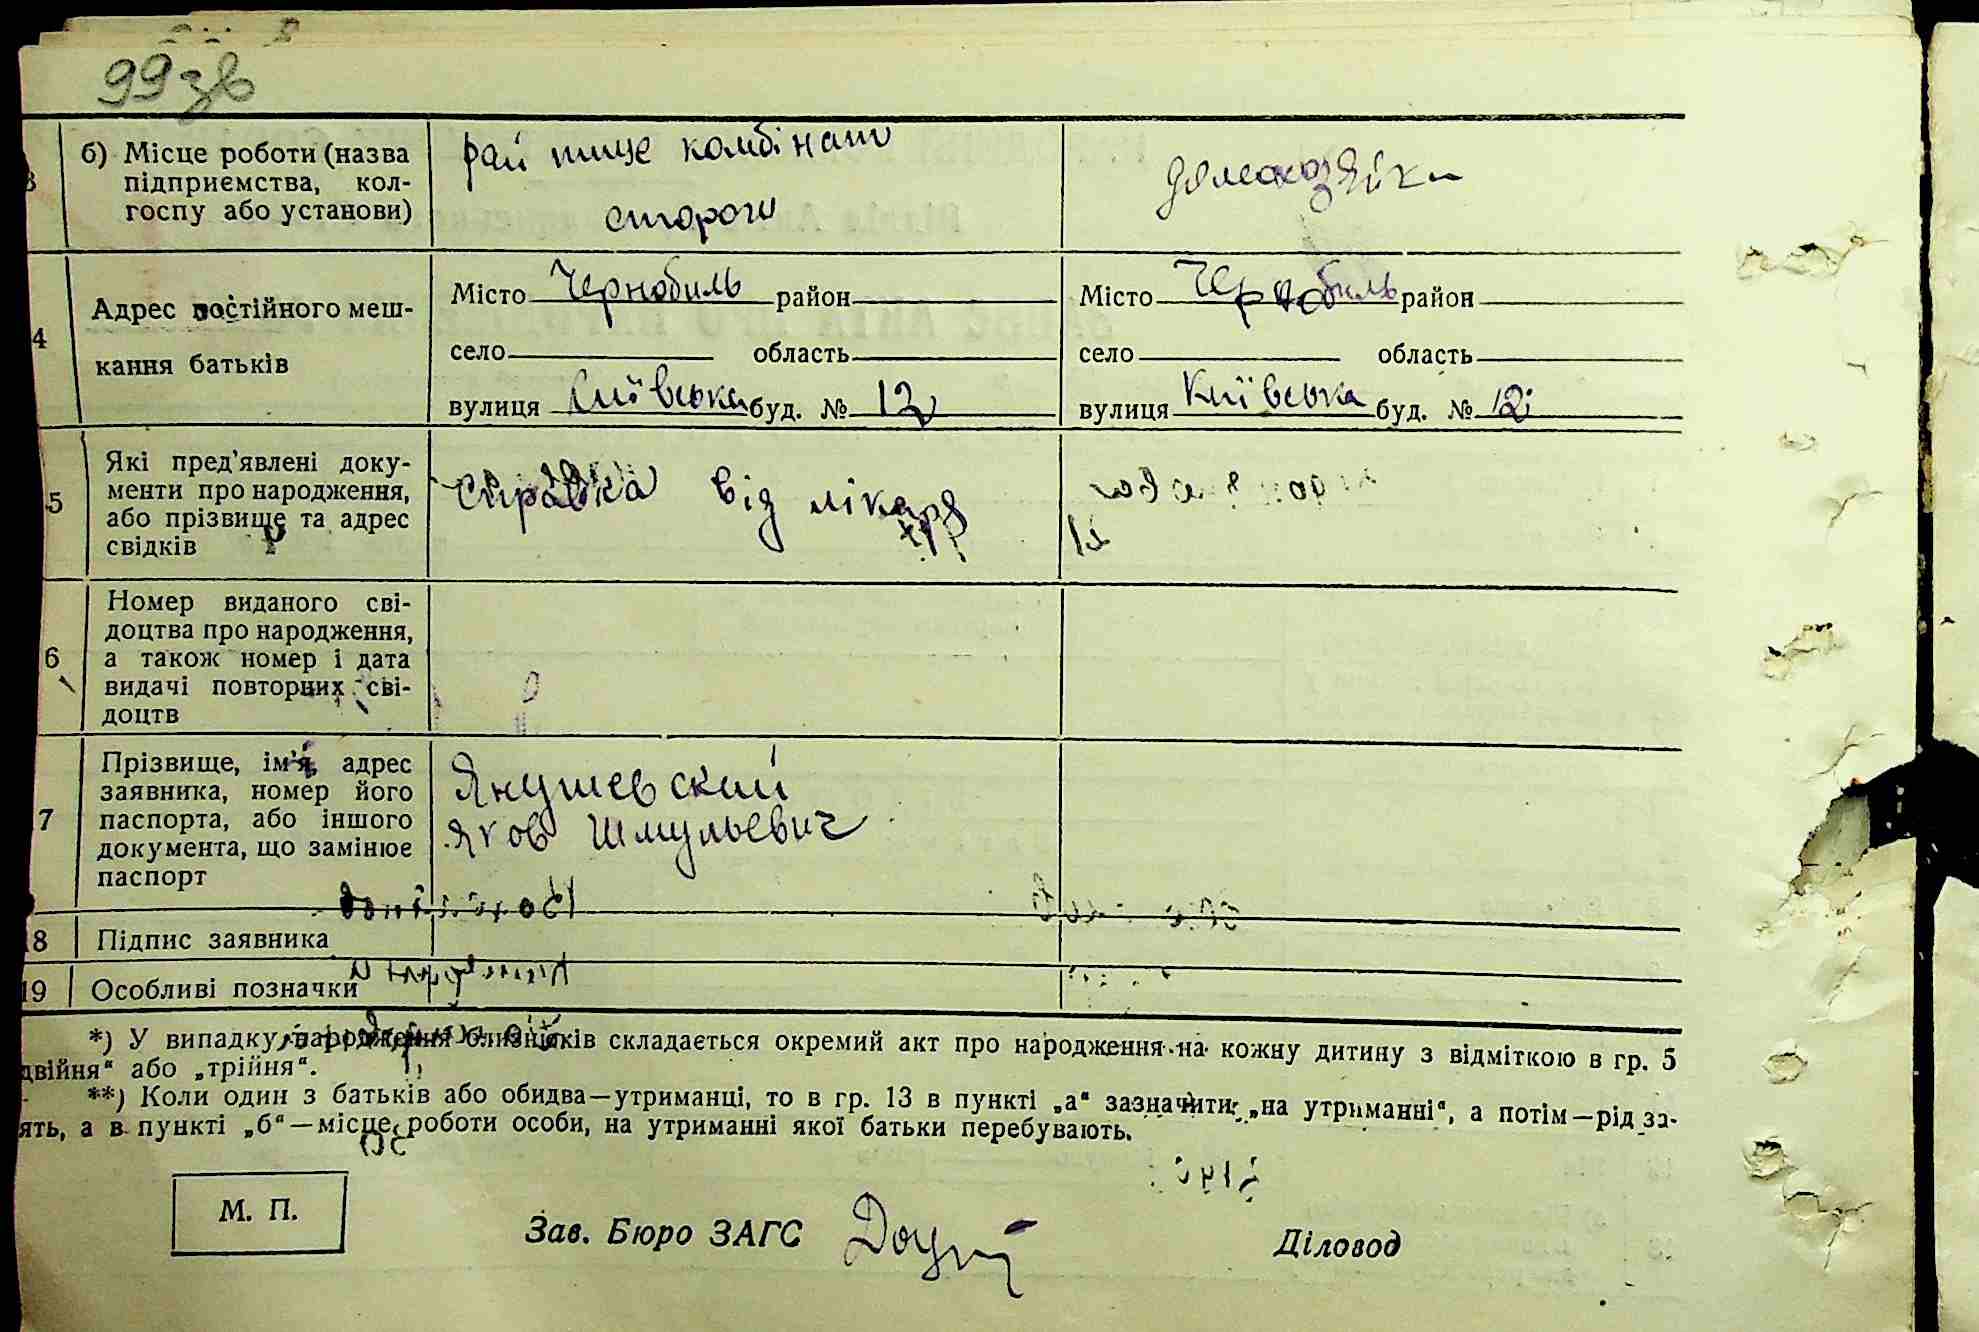 99зв
б) Місце роботи (назва
підприємства, кол-
госпу або установи)
рай пище комбінат
сторож
домохозяйка
4
Адрес постійного меш-
кання батьків
Місто Чернобиль район
село область
вулиця Київська буд. № 12
Місто Чернобиль район
село область
вулиця Київська буд. № 12
5
Які пред'явлені доку-
менти про народження,
або прізвище та адрес
свідків
справка від лікаря
6
Номер виданого сві-
доцтва про народження,
а також номер і дата
видачі повторних сві-
доцтв
7
Прізвище, ім'я, адрес
заявника, номер його
паспорта, або іншого
документа, що замінює
паспорт
Янушевский
Яков Шмульевич
18 Підпис заявника
19 Особливі позначки
*) У випадку народження близнюків складається окремий акт про народження на кожну дитину з відміткою в гр. 5
двійня“ або „трійня“.
**) Коли один з батьків або обидва—утриманці, то в гр. 13 в пункті „а“ зазначити: „на утриманні“, а потім—рід за-
ять, а в пункті „б“—місце роботи особи, на утриманні якої батьки перебувають.
М. П.
Зав. Бюро ЗАГС
Діловод